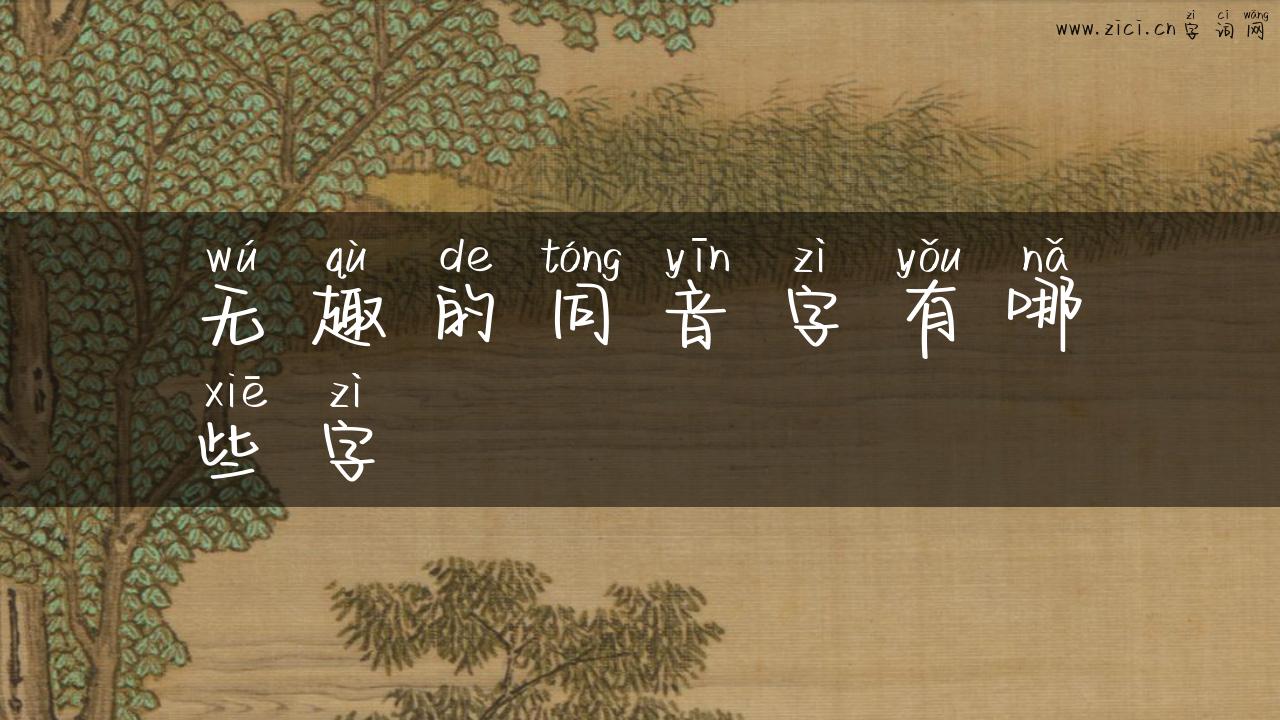 zì cí wǎng
www.zici.cn字词网
wú qù de tóng yīn zì yǒu nǎ
无趣的同音字有哪
xiē zì
些字